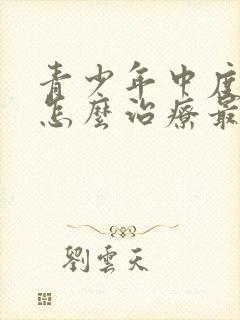 青少年中度
怎麼治療最
劉雲天